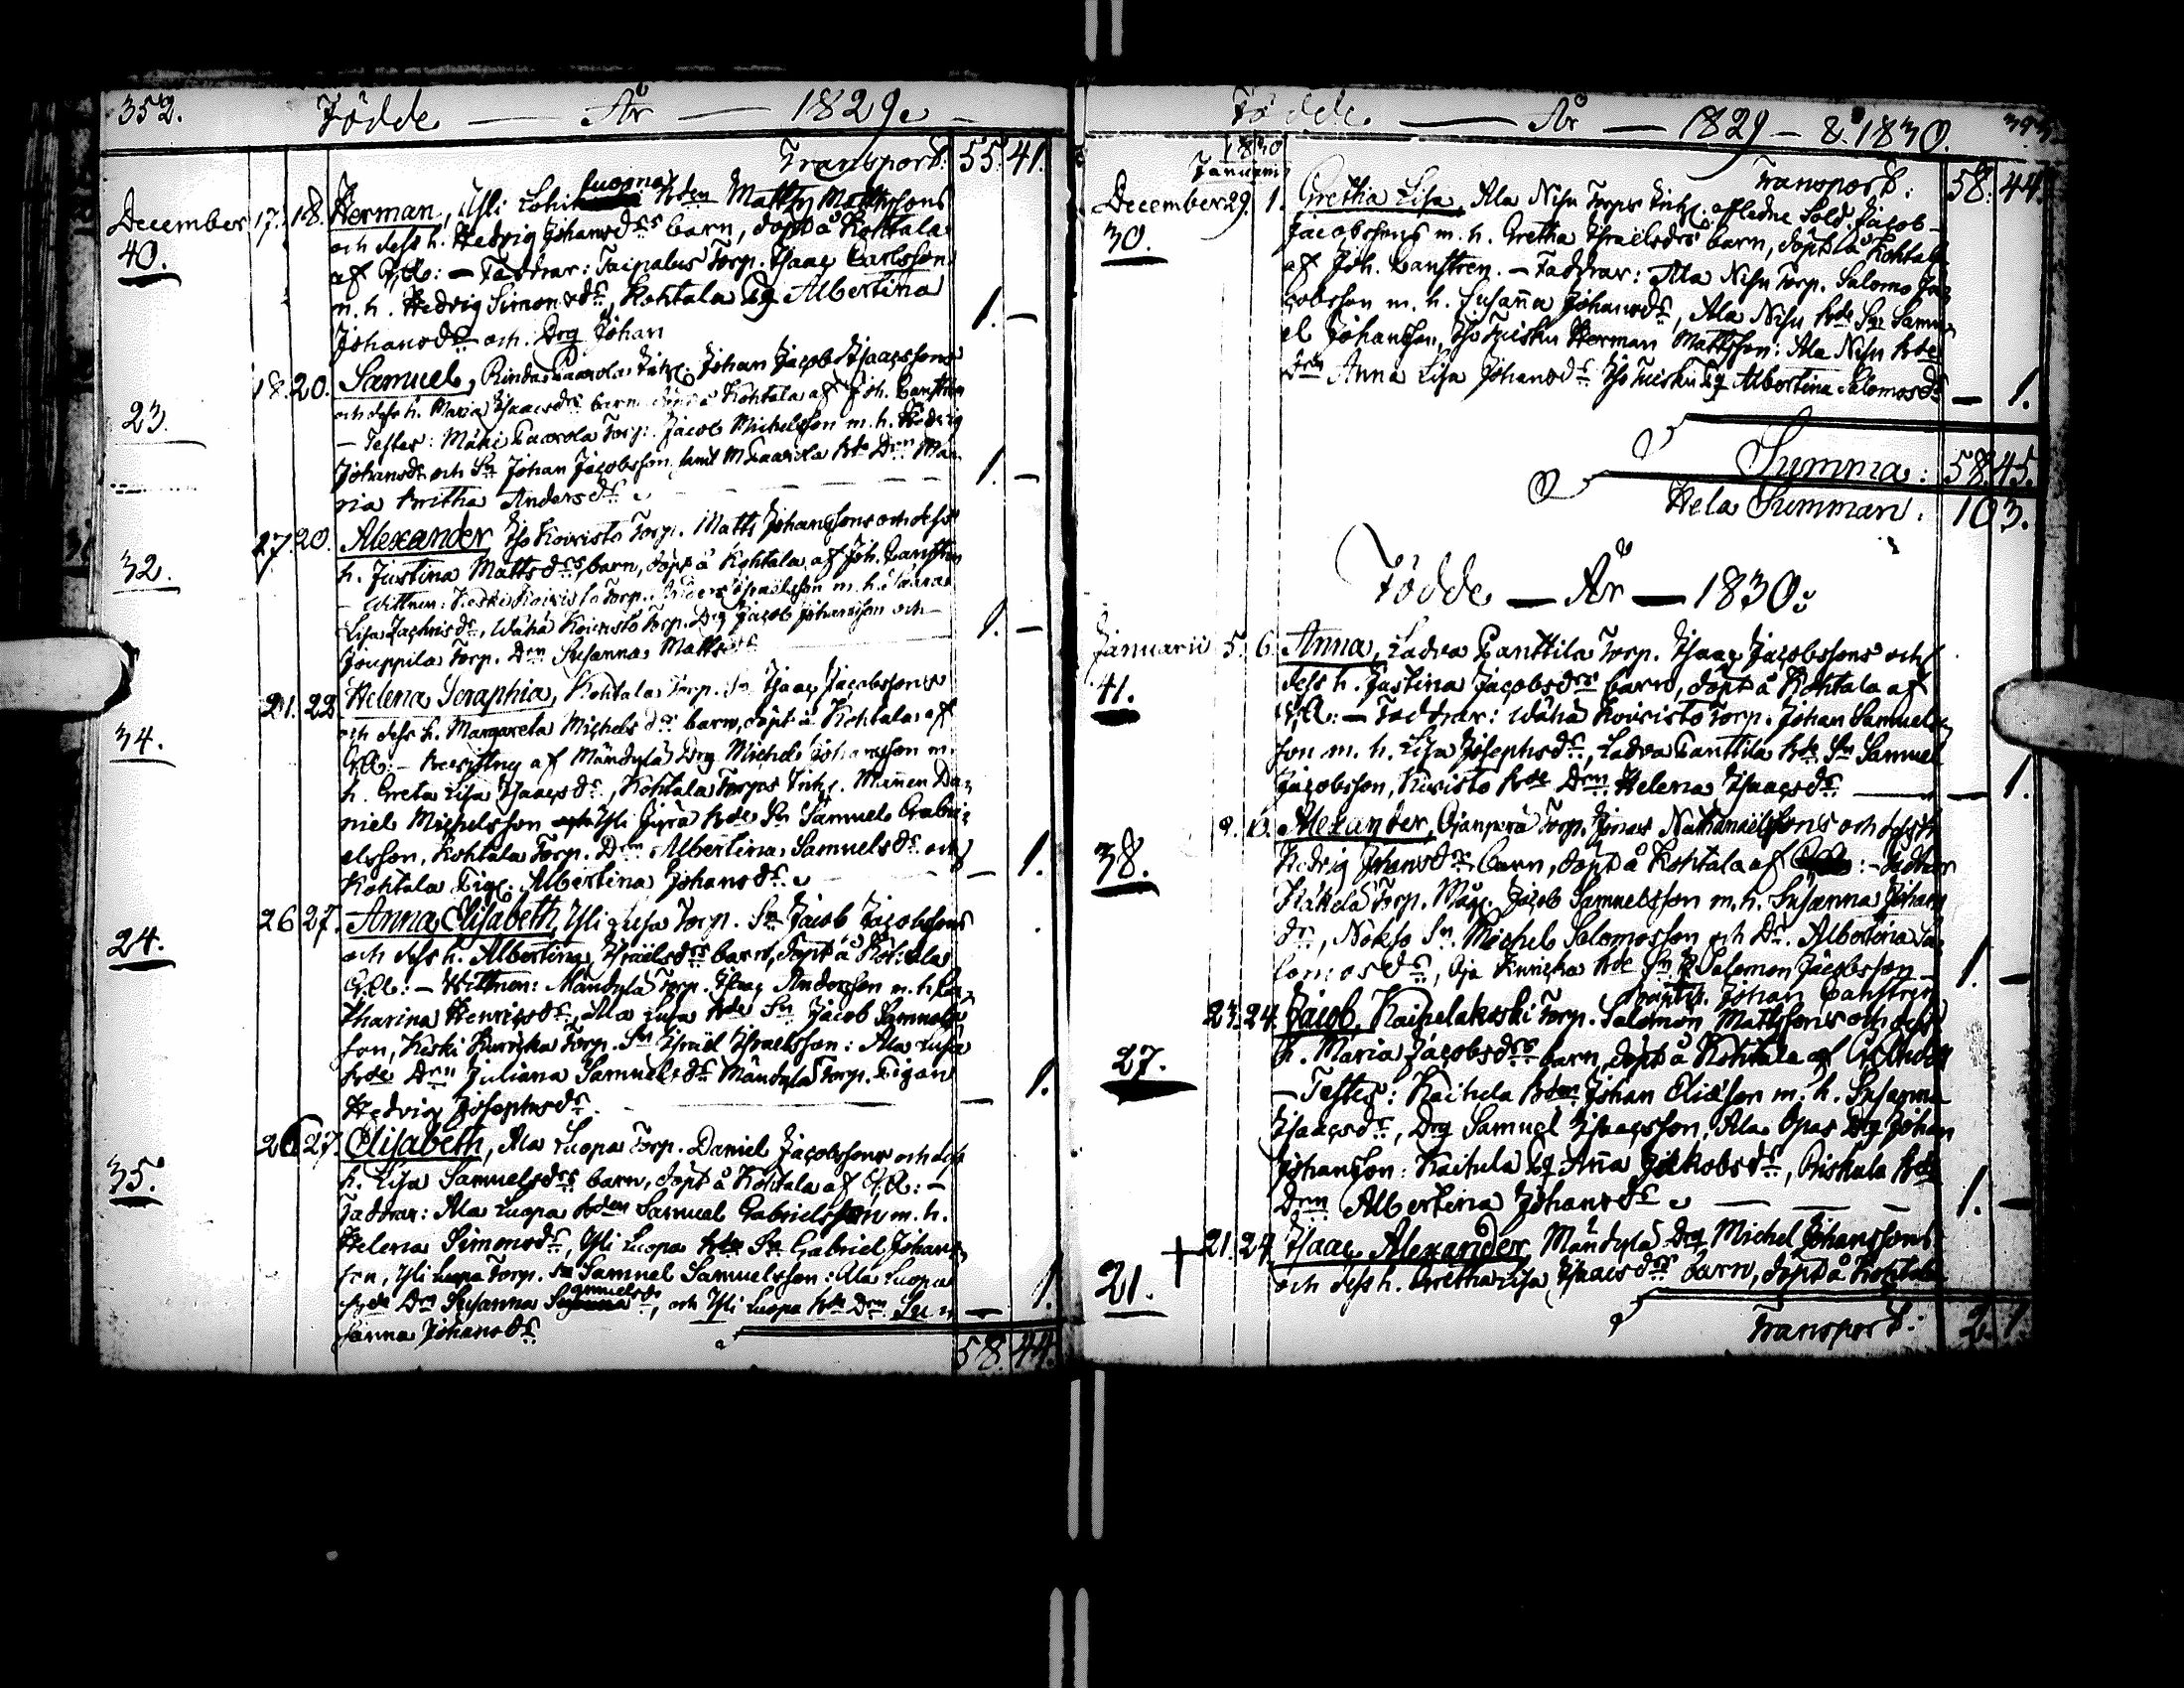 352. Födde — År — 1829.
Transport: 55. 41.
December 17. 18. Herman, Yli Lohiluoma Bden Matts Mattssons
40. och dess h. Hedvig Johansdrs barn, döpt å Kohtala
af : — Faddrar: Taipalus Torp. Isaac Carlsson
m. h. Hedvig Simonsdr, Kohtala Pg Albertina
Johansdr och Drg Johan 1. —
18. 20. Samuel, Rinda Inh. Johan Jacob Isaacssons
23. och dess h. Maria Isaacsdrs barn, döpt å Kohtala af Joh. Canstrén
— Testes: Mäki Torp. Jacob Michelsson m. h. Hedvig
Johansdr och Sn Johan Jacobsson, samt Bde Drn Ma-
ria Britha Andersdr 1. —
27. 20. Alexander, Koivisto Torp. Matts Johanssons och dess
32. h. Justina Mattsdrs barn, döpt å Kohtala af Joh. Canstrén
— Wittnen: Keski Koivisto Torp. Anders Israelsson m. h.
Lisa Zachrisdr, Wähä Koivisto Torp. Drg Jacob Johansson och
Jouppila Torp. Drn Susanna Mattsdr 1. —
21. 22. Helena Seraphia, Kohtala Torp. Sn Isaac Jacobssons
34. och dess h. Margareta Michelsdrs barn, döpt å Kohtala af
: — af Mändylä Drg Michel Johansson m.
h. Greta Lisa Isaacsdr, Kohtala Torps Inh. Mannen Da-
niel Michelsson Yli Jyrä Bde Sn Samuel Gabri-
elsson, Kohtala Torp. Drn Albertina Samuelsdr och
Kohtala Pig. Albertina Johansdr — 1.
26. 27. Anna Elisabeth, Yli Lusa Torp. Sn Jacob Jacobssons
24. och dess h. Albertina Israelsdrs barn, döpt å Kohtala
: — Wittnen: Mändylä Torp. Isaac Andersson m. h. Ca-
tharina Henricsdr, Ala Lusa Bde Sn Jacob Samuels-
son, Keski Kurikka Torp. Sn Israel Israelsson: Ala Lusa
Bde Drn Juliana Samuelsdr Mändylä Torp. Pigan
Hedvig Josephsdr — 1.
26. 27. Elisabeth, Ala Luopa Torp. Daniel Jacobssons och dess
35. h. Lisa Samuelsdrs barn, döpt å Kohtala af : —
Faddrar: Ala Luopa Bden Samuel Gabrielsson m. h.
Helena Simonsdr, Yli Luopa Bde Sn Gabriel Johans-
son, Yli Luopa Torp. Sn Samuel Samuelsson: Ala Luopa
Bde Drn Susanna Samuelsdr, och Yli Luopa Bde Drn Su-
sanna Johansdr — 1.
58. 44.
Födde. — År — 1829 — & 1830.
1830
Januarii
Transport: 58. 44.
December 29. 1. Gretha Lisa, Ala Nisu Torps Inh. afledne Sold. Jacob
30. Jacobssons m. h. Gretha Israëlsdrs barn, döpt å Kohtala
af Joh. Canstrén. — Faddrar: Ala Nisu Torp. Salomo Ja-
cobsson m. h. Susanna Johansdr, Ala Nisu Bde Sn Samu-
el Johansson, Iso Tuisku Herman Mattsson: Ala Nisu Bde
Drn Anna Lisa Johansdr. Iso Tuisku Pg Albertina Salomosdr — 1.
Summa: 58. 45.
Hela Summan. 103.
Födde — År — 1830.
Januarii 5. 6. Anna, Ladva Panttila Torp. Isaac Jacobssons och
41. dess h. Justina Jacobsdrs barn, döpt å Kohtala af
: — Faddrar: Wähä Koivisto Torp. Johan Samuels-
son m. h. Lisa Josephsdr, Ladva Panttila Bde Sn Samuel
Jacobsson, Koivisto Bde Drn Helena Isaacsdr — 1.
Alexander, Ojanperä Torp. Jonas Nathanaelssons och dess h.
38. Hedvig Johansdrs barn, döpt å Kohtala af : —
Käkelä Torp. Måg. Jacob Samuelsson m. h. Susanna Johans
dr, Nokso Sn. Michel Salomosson och Dr. Albertina Sa-
lomosdr, Oja Kurikka Bde Sn Salomon Jacobsson — 1. —
Johan Canstrén
23. 24. Jacob, Kaihelakoski Torp. Salomon Mattssons och dess
27. h. Maria Jacobsdrs barn, döpt å Kohtala af
— Testes: Kaihela Bden Johan Eliasson m. h. Susanna
Isaacsdr, Drg Samuel Isaacsson, Ala Opas Drg Johan
Johansson: Kaihela Pg Anna Jakobsdr, Riskula Bde
Drn Albertina Johansdr 1. —
+ 21. 24. Isaac Alexander, Mändylä Drg Michel Johanssons
21. och dess h. Gretha Lisa Isaacsdrs barn, döpt å Kohtala
Transport: 2. 1